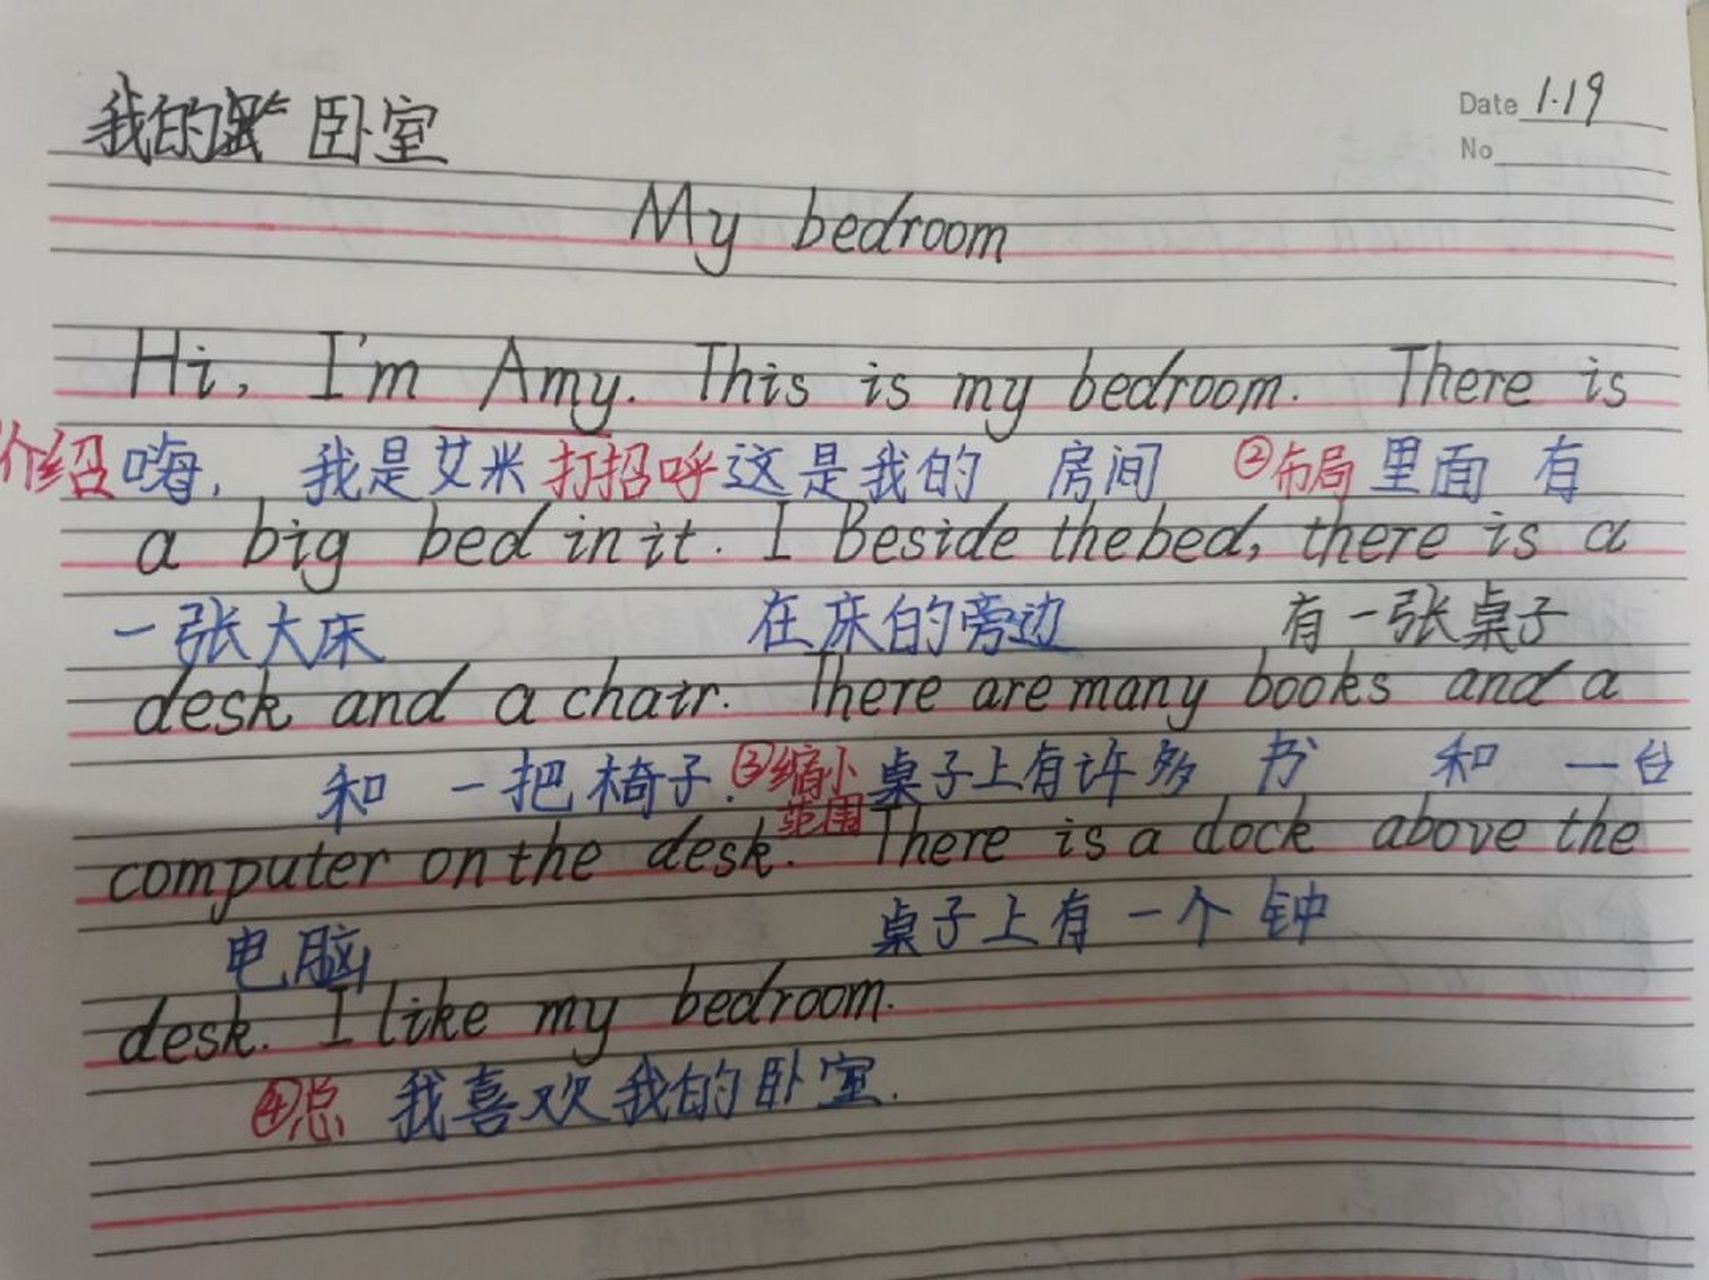 我的 卧室
Date 1.19
No
My bedroom
Hi, I'm Amy. This is my bedroom. There is
介绍 嗨, 我是艾米 打招呼 这是我的 房间 ②布局 里面 有
a big bed in it. I Beside the bed, there is a
一张大床 在床的旁边 有一张桌子
desk and a chair. There are many books and a
和 一把椅子. ③缩小范围 桌子上有许多 书 和 一台
computer on the desk. There is a dock above the
电脑 桌子上有 一个 钟
desk. I like my bedroom.
④总 我喜欢我的卧室.